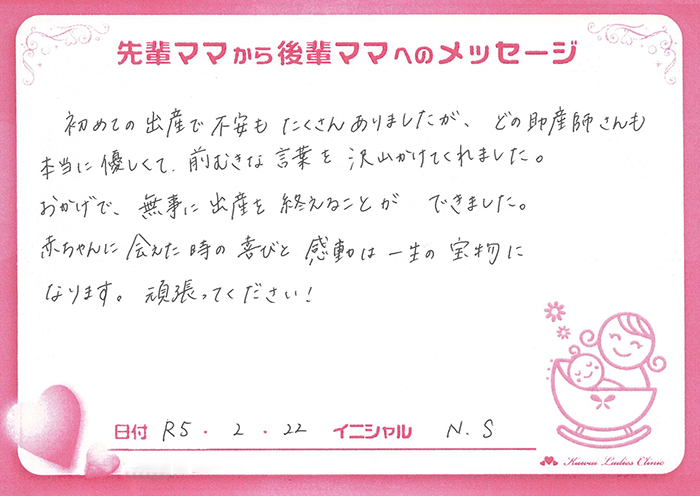 先輩ママから後輩ママへのメッセージ
初めての出産で不安もたくさんありましたが、どの助産師さんも
本当に優しくて、前むきな言葉を沢山かけてくれました。
おかげで、無事に出産を終えることができました。
赤ちゃんに会えた時の喜びと感動は一生の宝物に
なります。頑張ってください!
日付 R5・2・22 イニシャル N.S
Kawai Ladies Clinic